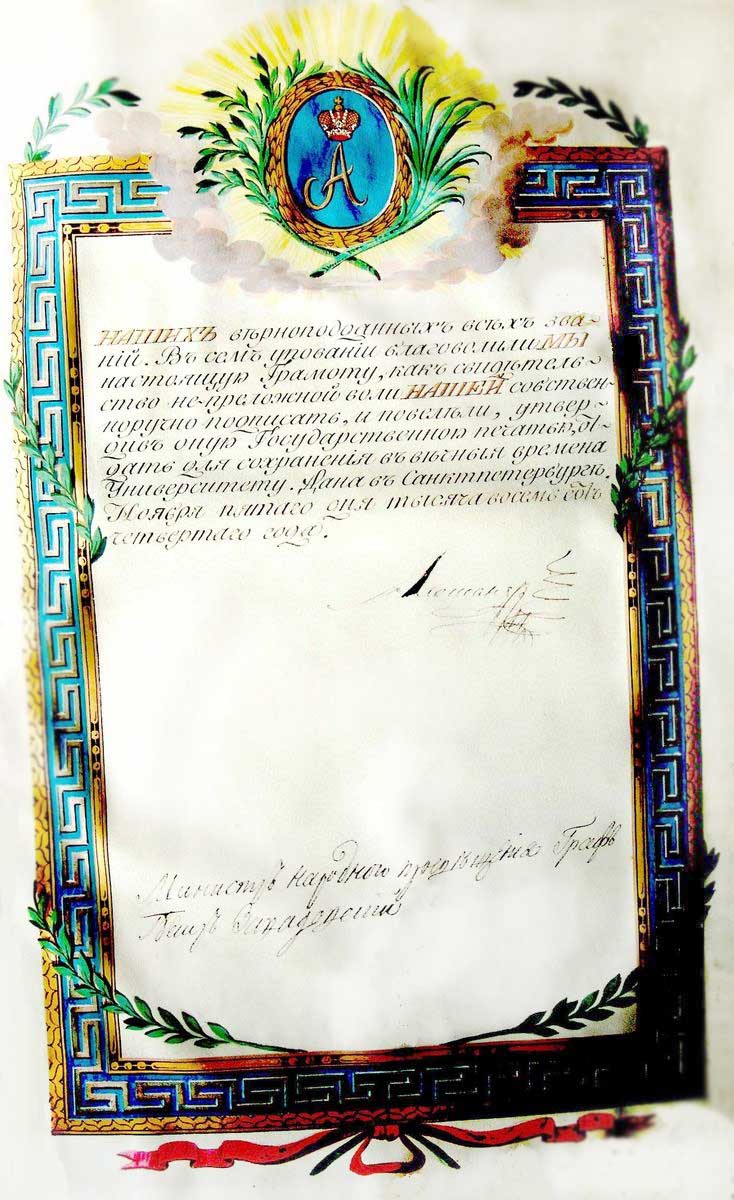 А
НАШИХЪ вѣрноподданныхъ всѣхъ зва-
ній. Въ семъ упованіи благоволили МЫ
настоящую Грамоту, какъ свидѣтель-
ство непреложной воли НАШЕЙ собствен-
норучно подписать, и повелѣли, утвер-
дивъ оную Государственною печатью, от-
дать для сохраненія въ вѣчныя времена
Университету. Дана въ Санктпетербургѣ.
Ноября пятаго дня тысяча восемь сотъ
четвертаго года.
Александръ
Министръ народнаго просвѣщенія Графъ
Петръ Завадовскій